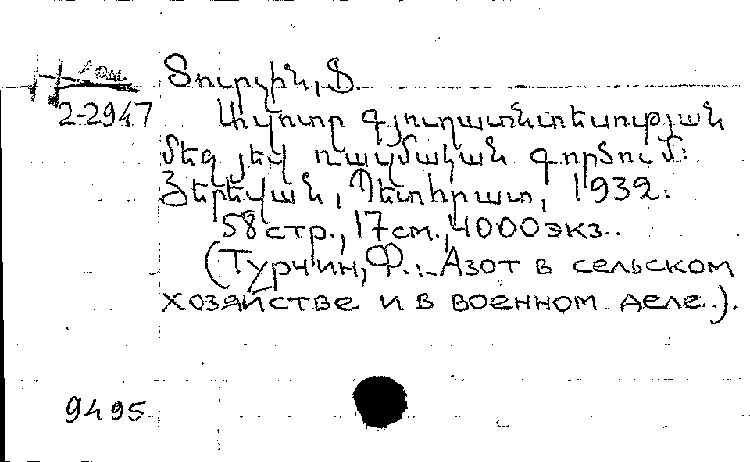 Տուրչին, Ֆ.
2-2947
Ազոտը գյուղատնտեսության
մեջ յեվ ռազմական գործում:
Յերեվան, Պետհրատ, 1932.
58 стр., 17 см., 4000 экз.
(Турчин, Ф. Азот в сельском
хозяйстве и в военном деле.).
9495